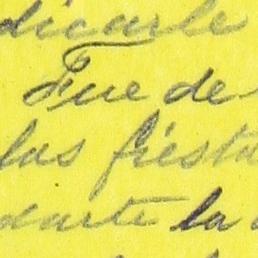 dicarle
Fue de
las fiesta
darte la